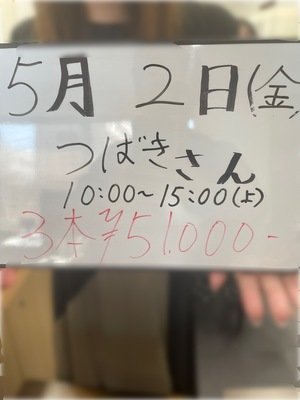 5月 2日(金)
つばきさん
10:00~15:00(上)
3本¥51.000-